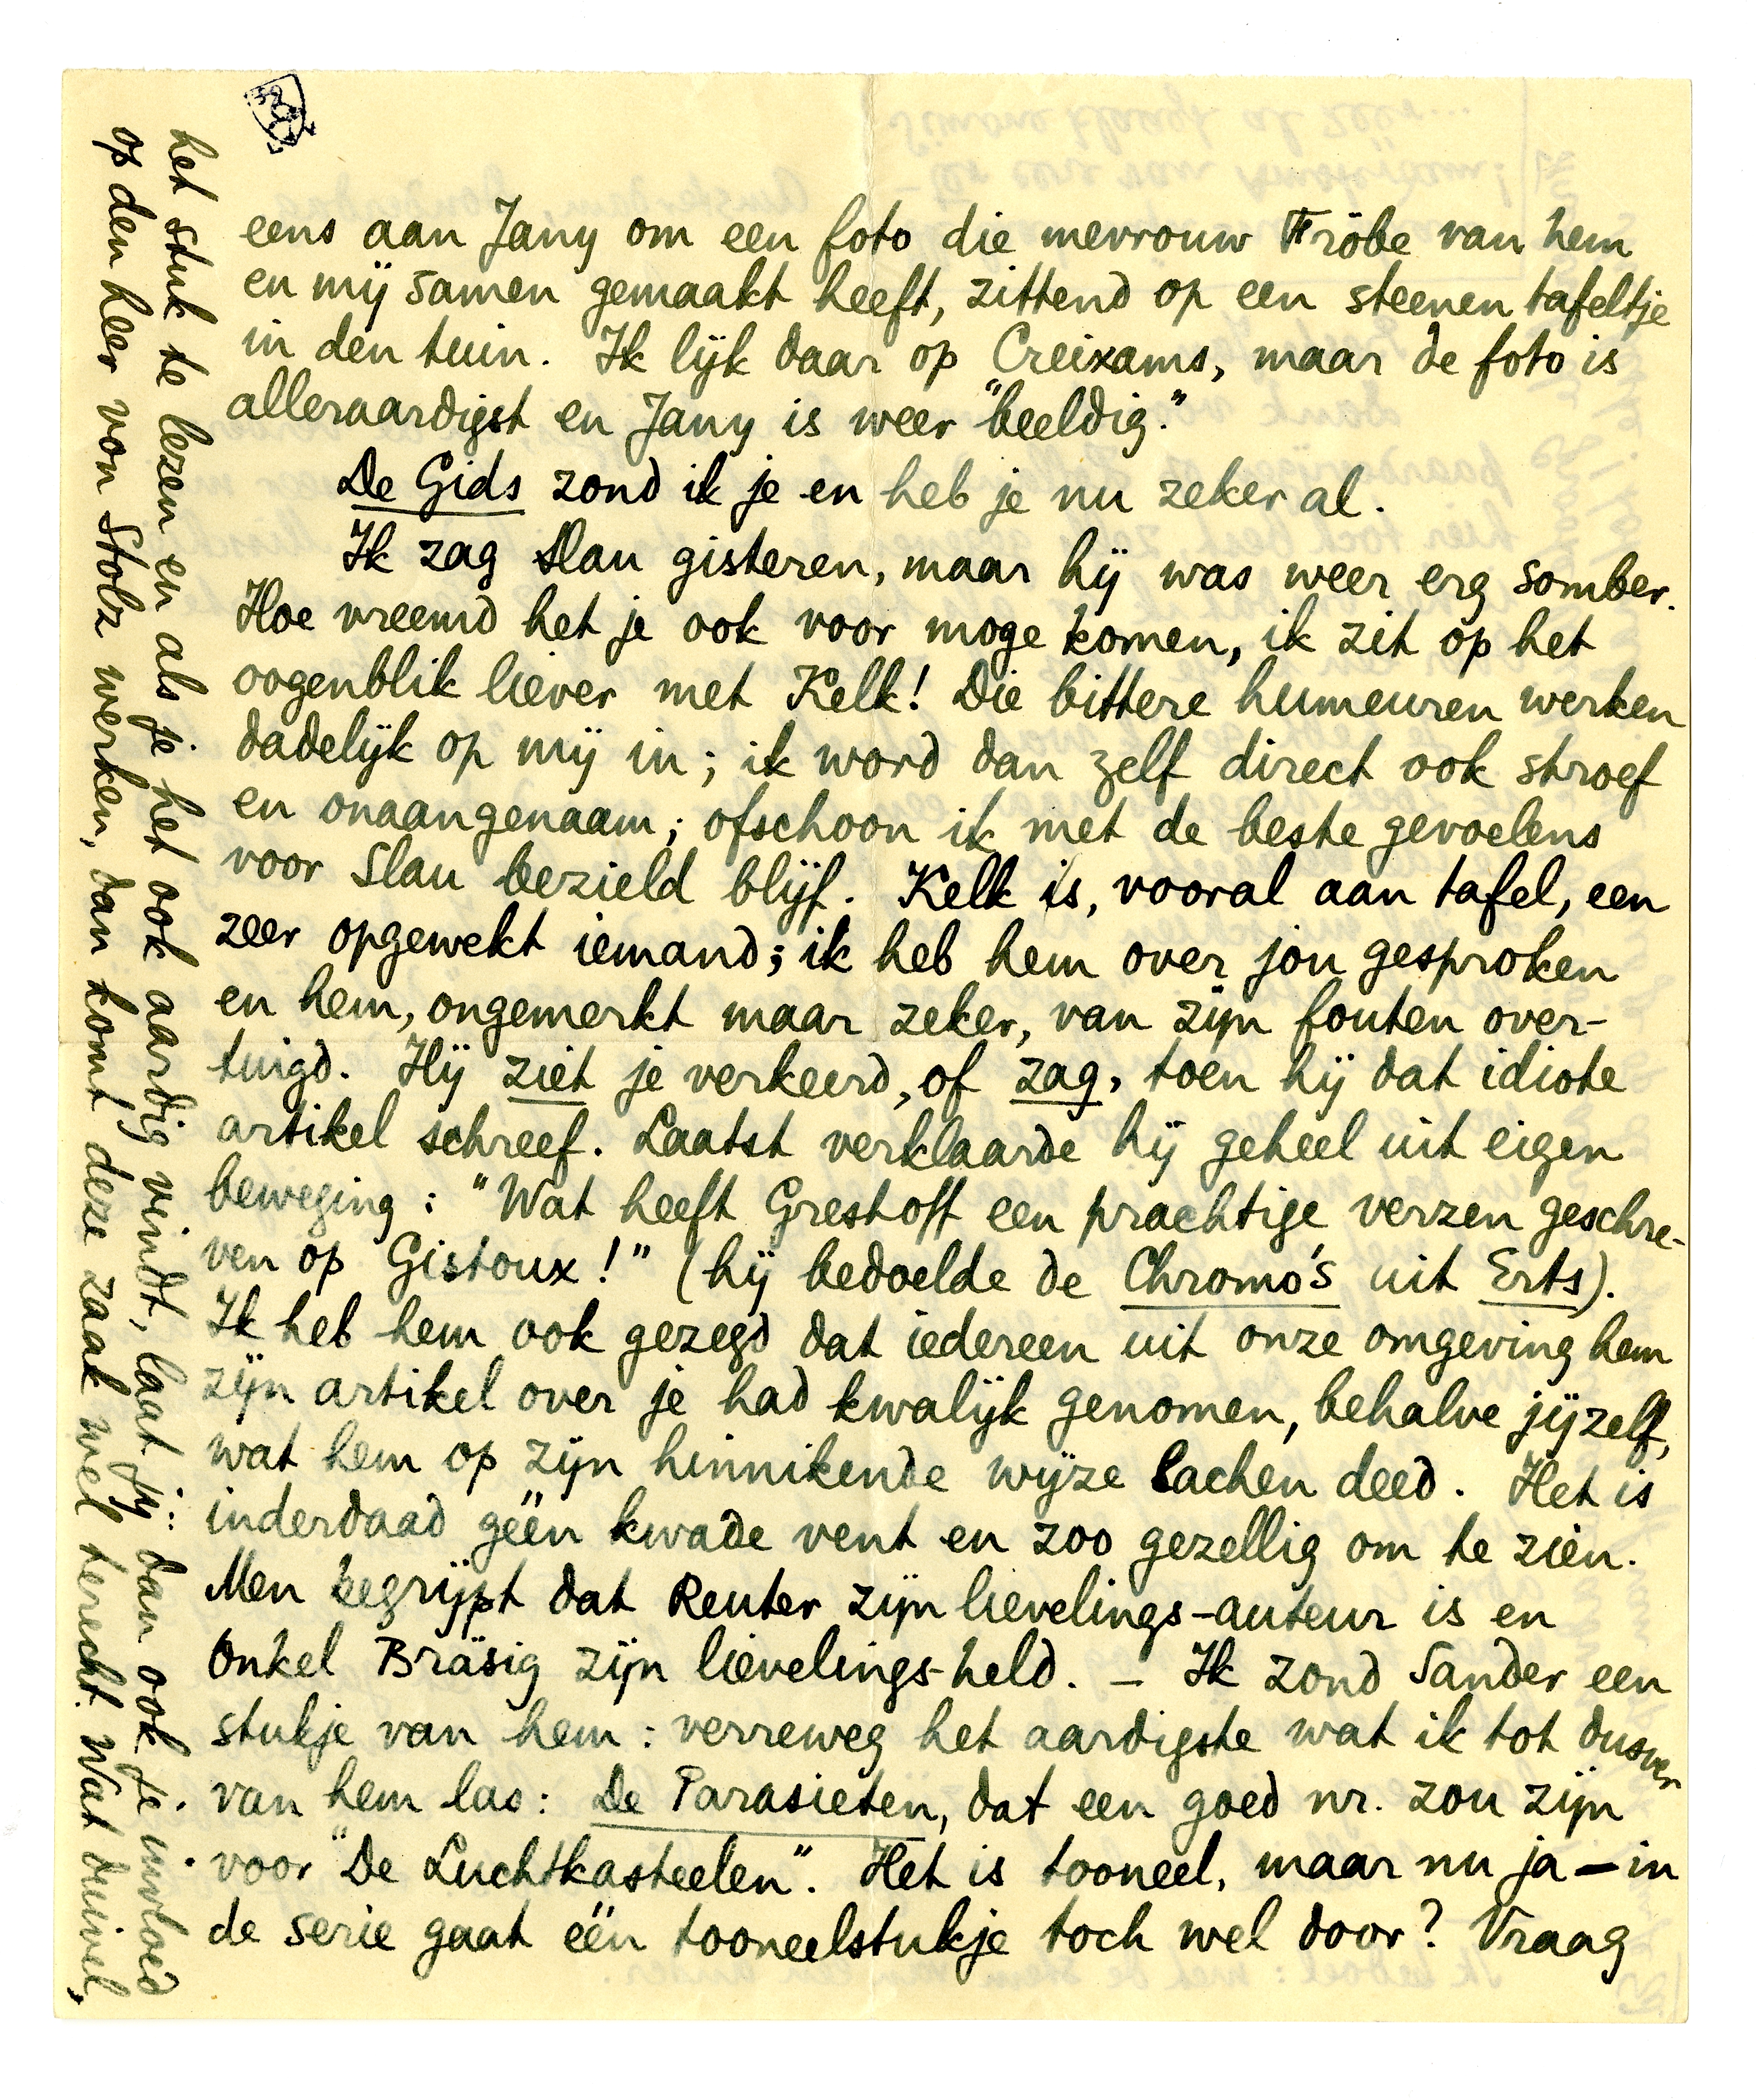 eens aan Jany om een foto die mevrouw Fröbe van hem
en mij samen gemaakt heeft, zittend op een steenen tafeltje
in den tuin. Ik lijk daar op Creixams, maar de foto is
alleraardigst en Jany is weer "beeldig."
De Gids zond ik je en heb je nu zeker al.
Ik zag Slau gisteren, maar hij was weer erg somber.
Hoe vreemd het je ook voor moge komen, ik zit op het
oogenblik liever met Kelk! Die bittere humeuren werken
dadelijk op mij in; ik word dan zelf direct ook stroef
en onaangenaam; ofschoon ik met de beste gevoelens
voor Slau bezield blijf. Kelk is, vooral aan tafel, een
zeer opgewekt iemand; ik heb hem over jou gesproken
en hem, ongemerkt maar zeker, van zijn fouten over-
tuigd. Hij ziet je verkeerd, of zag, toen hij dat idiote
artikel schreef. Laatst verklaarde hij geheel uit eigen
beweging: "Wat heeft Greshoff een prachtige verzen geschre-
ven op Gistoux!" (hij bedoelde de Chromo's uit Erts).
Ik heb hem ook gezegd dat iedereen uit onze omgeving hem
zijn artikel over je had kwalijk genomen, behalve jijzelf,
wat hem op zijn hinnikende wijze lachen deed. Het is
inderdaad géén kwade vent en zoo gezellig om te zien.
Men begrijpt dat Reuter zijn lievelings-auteur is en
Onkel Bräsig zijn lievelings-held. — Ik zond Sander een
stukje van hem: verreweg het aardigste wat ik tot dusver
van hem las: De Parasieten, dat een goed nr. zou zijn
voor "De Luchtkasteelen". Het is tooneel, maar nu ja — in
de serie gaat één tooneelstukje toch wel door? Vraag
het stuk te lezen en als je het ook aardig vindt, laat jij dan ook je invloed
op den heer von Stolz werken, dan komt deze zaak wel terecht. Wat duivel,